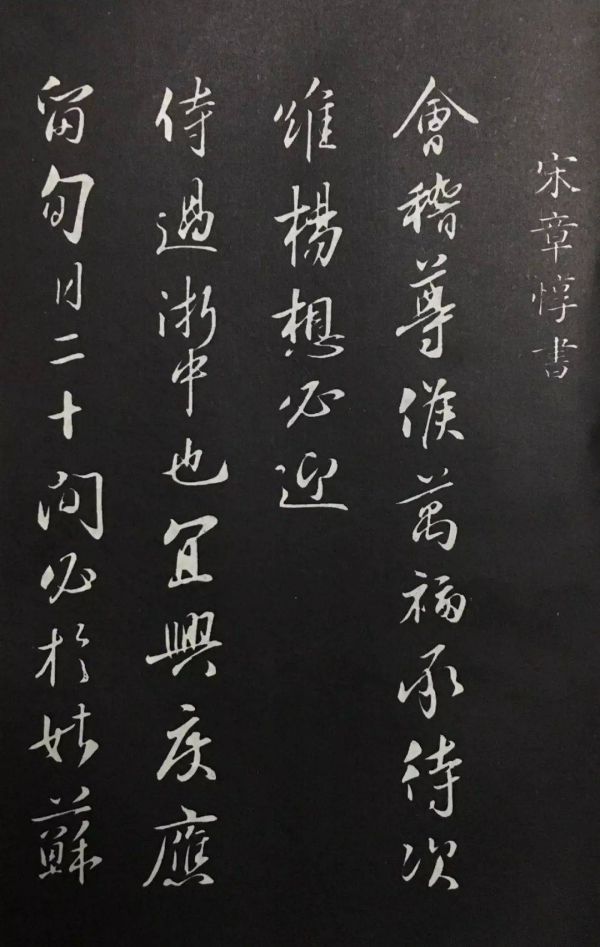 宋章惇書
會稽尊候萬福承待次
維楊想必迎
侍過浙中也宜興庱應
留旬日二十間必於姑蘇